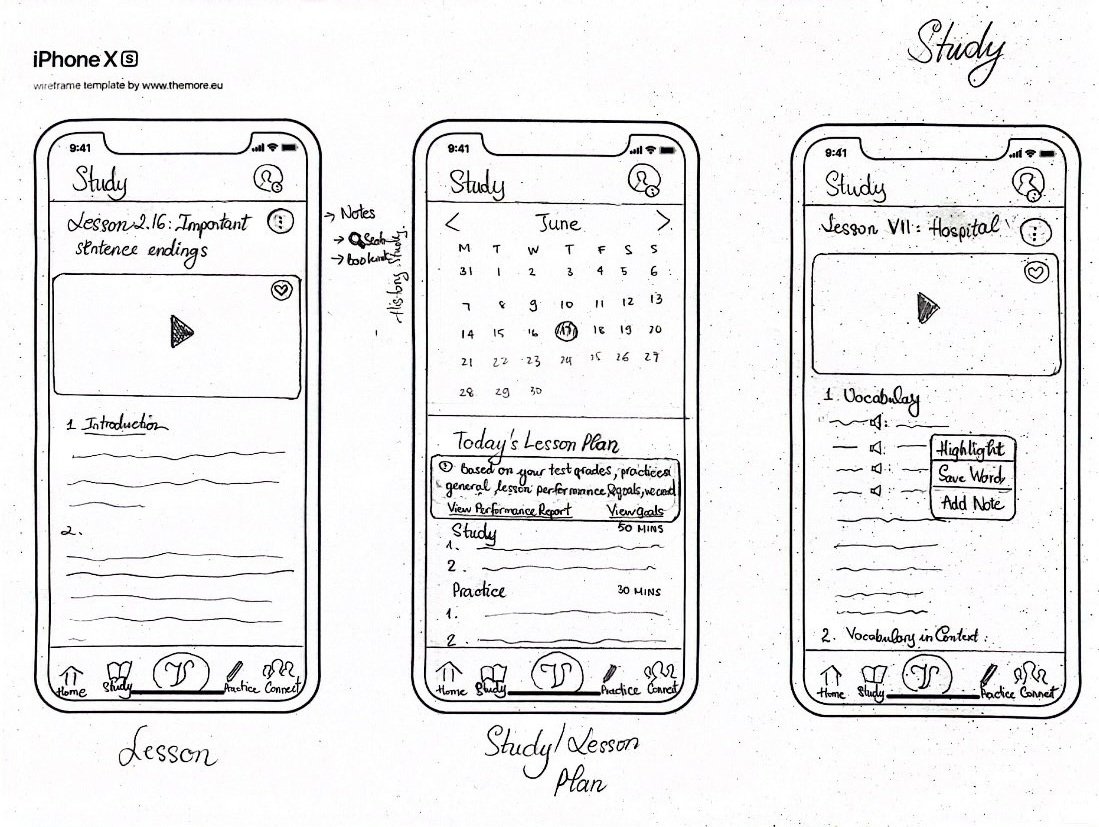 iPhone X S
wireframe template by www.themore.eu
Study
9:41
Study
Lesson 2.16: Important
sentence endings
1 Introduction
2.
Home
Study
Practice
Connect
Lesson
→ Notes
→ Search
→ Bookmark
History Study
9:41
Study
< June >
M T W T F S S
31 1 2 3 4 5 6
7 8 9 10 11 12 13
14 15 16 17 18 19 20
21 22 23 24 25 26 27
28 29 30
Today's Lesson Plan
Based on your test grades, practices
general, lesson performance & goals, we
View Performance Report View goals
Study 50 MINS
1.
2.
Practice 30 MINS
1.
2.
Home
Study
Practice
Connect
Study/Lesson
Plan
9:41
Study
Lesson VII: Hospital
1. Vocabulay
Highlight
Save Word
Add Note
2. Vocabulary in Context:
Home
Study
Practice
Connect